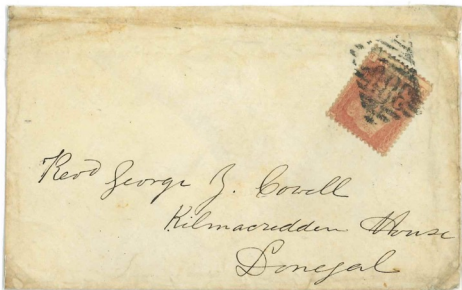 Revd George Y. Cowell
Kilmacredden House
Donegal